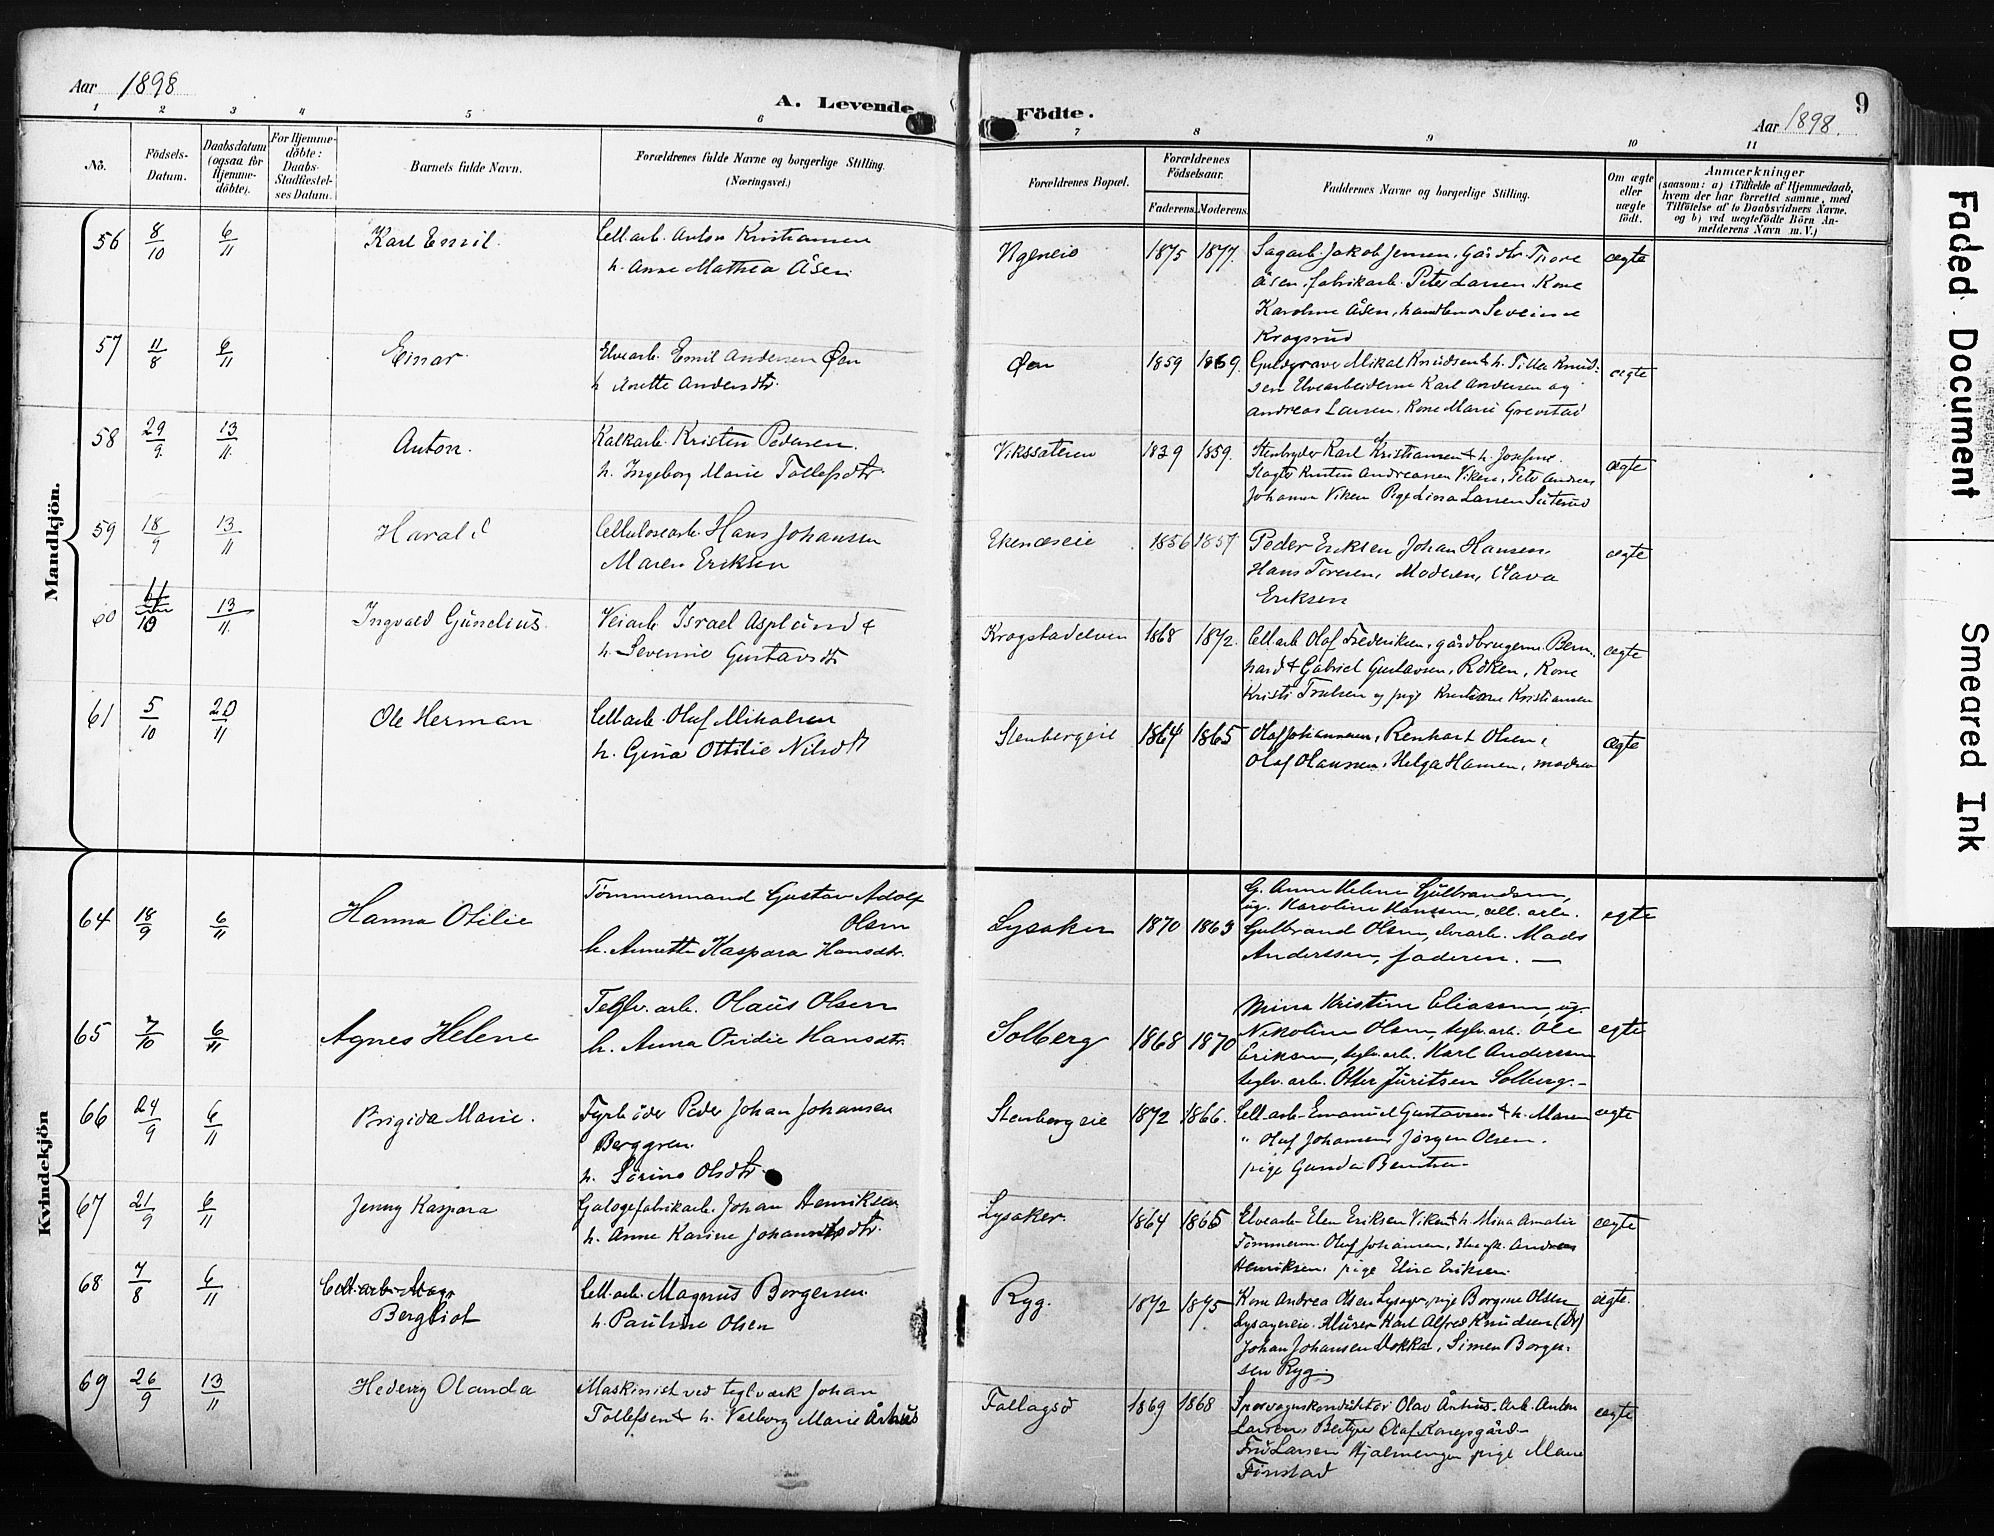 Aar 1898
A. Levende
Födte.
9
Aar 1898.
1 2 3 4 5 6 7 8 9 10 11
No.
Födsels-
Datum.
Daabsdatum
(ogsaa for
Hjemme-
döbte).
For Hjemme-
döbte:
Daabs-
Stadfæstel-
ses Datum.
Barnets fulde Navn.
Forældrenes fulde Navne og borgerlige Stilling.
(Næringsvei.)
Forældrenes Bopæl.
Forældrenes
Födselsaar.
Faderens. Moderens.
Faddernes Navne og borgerlige Stilling.
Om ægte
eller
uægte
födt.
Anmærkninger
(saasom: a) i Tilfælde af Hjemmedaab,
hvem der har forrettet samme, med
Tilföielse af to Daabsvidners Navne.
og b) ved uægtefödte Börn An-
melderens Navn m. V.)
Mandkjön.
56 8/10 6/11 Karl Emil. Cell.arb. Anton Kristiansen
h. Anne Mathea Åsen
1875 1877. Sagarb. Jakob Jensen, Gårdbr. Thore
Åsen, fabrikarb. Peter Larsen. Kone
Karoline Åsen, handlende Severine
Krogsrud
ægte
57 11/8 6/11 Einar. Elvearb. Emil Andersen Øen
h. Anette Andersdtr.
Øen 1859 1869. Mikal Knudsen & h. Tilla Knud-
sen Elvearbeiderne Karl Andersen og
Andreas Larsen. Kone Marie Grevstad
ægte
58 29/9 13/11 Anton. Kalkarb. Kristen Pedersen
h. Ingeborg Marie Tollefsdtr
Vikssateren 1839 1859. Stenbryder Karl Kristiansen & h. Josefine.
Andreassen Viken, Peter Andreas
Johansen Viken Pige Lina Larsen
ægte
59 18/9 13/11 Harald Cellulosearb. Hans Johansen
Maren Eriksen
Ekenæseie 1856 1857 Peder Eriksen Johan Hansen,
Hans Toresen, Moderen, Olava
Eriksen
ægte
60 11/10 13/11 Ingvald Gunelius. Veiarb Israel Asplund &
h. Severine Gustavsdtr
Krogstadelven 1868 1872. Cell.arb Olaf Frederiksen, gårdbrugerne Bern-
hard & Gabriel Gustavsen, Røken, Kone
Kristi Trulsen og pige Kristiane Kristiansen
ægte
61 5/10 20/11 Ole Herman Cell.arb. Oluf Mikalsen
h. Gina Ottilie Nilsdtr
Stenbergeie 1864 1865 Olaf Johannesen, Renhart Olsen,
Olaf Olaussen, Helga Hansen, modren
ægte
Kvindekjön
64 18/9 6/11 Hanna Otilie Tømmermand Gustav Adolf
Olsen
h. Annette Kaspara Hansdtr.
Lysaker 1870 1863 G. Anne Helene Gulbrandsen,
ug. Karoline Hanssen, cell. arb.
Gulbrand Olsen, elvearb. Mads
Anderssen, faderen. —
egte
65 7/10 6/11 Agnes Helene Teglv. arb. Olaus Olsen
h. Anna Ovidie Hansdtr.
Solberg 1868 1870 Mina Kristine Eliassen, ug.
Nikoline Olsen, teglv. arb. Ole
Eriksen, teglv. arb. Karl Anderssen
teglv. arb. Otter Juritsen Solberg. –
egte
66 24/9 6/11 Brigida Marie. Fyrbøder Peder Johan Johansen
Berggren.
h. Serine Olsdtr.
Stenbergeie 1872 1866. Cell.arb. Emanuel Gustavsen & h. Maren
" Oluf Johansen Jørgen Olsen.
pige Gunda Berntsen
ægte
67 21/9 6/11 Jenny Kaspara Galogefabrikarb. Johan Henriksen
h. Anne Karine Johannesdtr.
Lysaker 1864 1865 Elvearb. Elen Eriksen Viken & h. Mina Amalie
Tømmerm. Oluf Johansen, Andreas
Henriksen, pige Elise Eriksen
ægte
68 7/8 6/11 Cell.arb. Mag
Bergliot
Cell.arb. Magnus Borgersen
h. Pauline Olsen
Ryg. 1872 1875 Kone Andrea Olsen pige Borgine Olsen
Murer Karl Alfred Knudsen
Johan Johansen Dokka, Simen Borger-
sen Ryg
ægte.
69 26/9 13/11 Hedevig Olanda Maskinist ved teglværk Johan
Tollefsen & h. Valborg Marie Århus
Follagsd 1869 1868 Sporvognskonduktør Olav Århus. Arb. Anton
Larsen, Olaf Kongsgård
Fru Larsen Hjalmengen pige Marie
Finstad
ægte
Faded Document
Smeared Ink